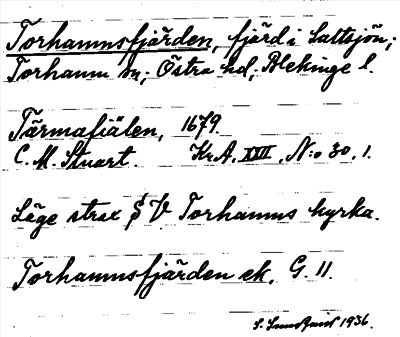 Torhamnsfjärden, fjärd i Saltsjön;
Torhamn sn; Östra hd; Blekinge l.
Tärmafiälen, 1679.
C. M. Stuart. Kr.A. XXII, N:o 30, 1.
Läge strax SV Torhamns kyrka.
Torhamnsfjärden ek. G. 11.
S. 1936.